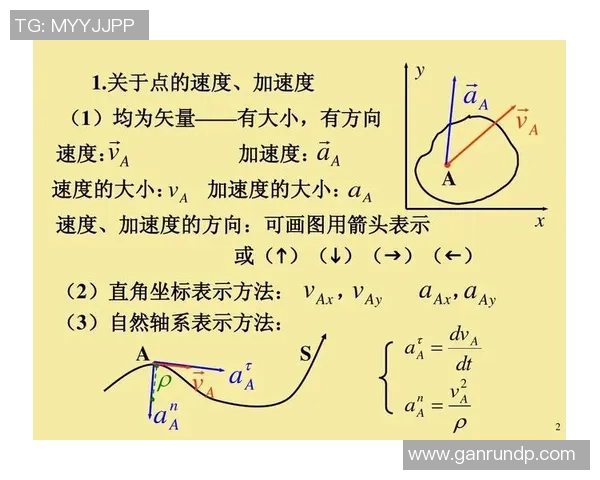 TG: MYYJJPP
1.关于点的速度、加速度
（1）均为矢量——有大小，有方向
速度: v⃗_A 加速度: a⃗_A
速度的大小: v_A 加速度的大小: a_A
速度、加速度的方向：可画图用箭头表示
或（↑）（↓）（→）（←）
y
a⃗_A
v⃗_A
A
x
（2）直角坐标表示方法： v_Ax , v_Ay a_Ax , a_Ay
（3）自然轴系表示方法:
A
S
ρ
v⃗_A
a_A^τ
a_A^n
a_A^τ = dv_A/dt
a_A^n = v_A^2/ρ
2
www.ganrundp.com